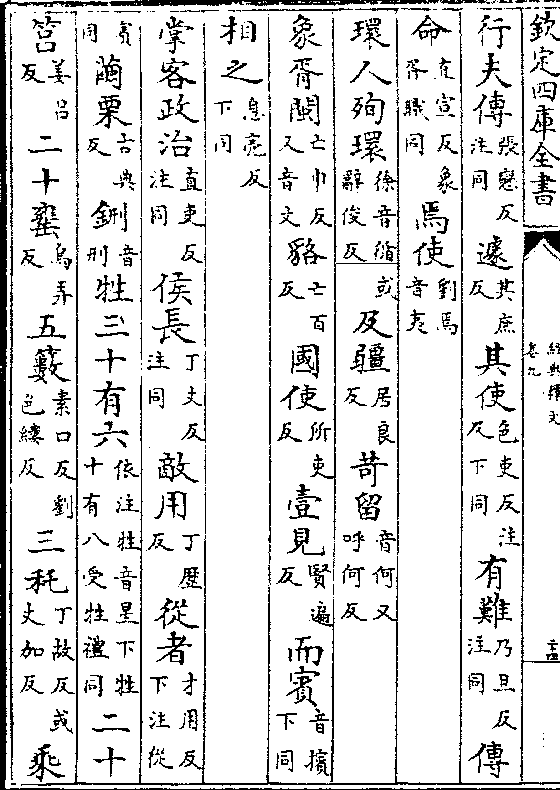 欽定四庫全書
經典釋文
卷九
十四
行夫傳張戀反注同遽其庶反其使色吏反注及下同有難乃旦反注同傳
命直宣反象胥職同焉使劉焉音夷
環人殉環徐音循或辭俊反及疆居良反苛留音何又呼何反
象胥閩亡巾反又音文貉亡百反國使所吏反壹見賢遍反而賓音擯下同
相之息亮反下同
掌客政治直吏反注同侯長丁丈反注同敵用丁歷反從者才用反下注從
賓同繭栗古典反鉶音刑牲三十有六依注牲音星下牲十有八受牲禮同二十
筥姜呂反二十罋烏弄反五籔素口反劉色縷反三秅丁故反或丈加反乘